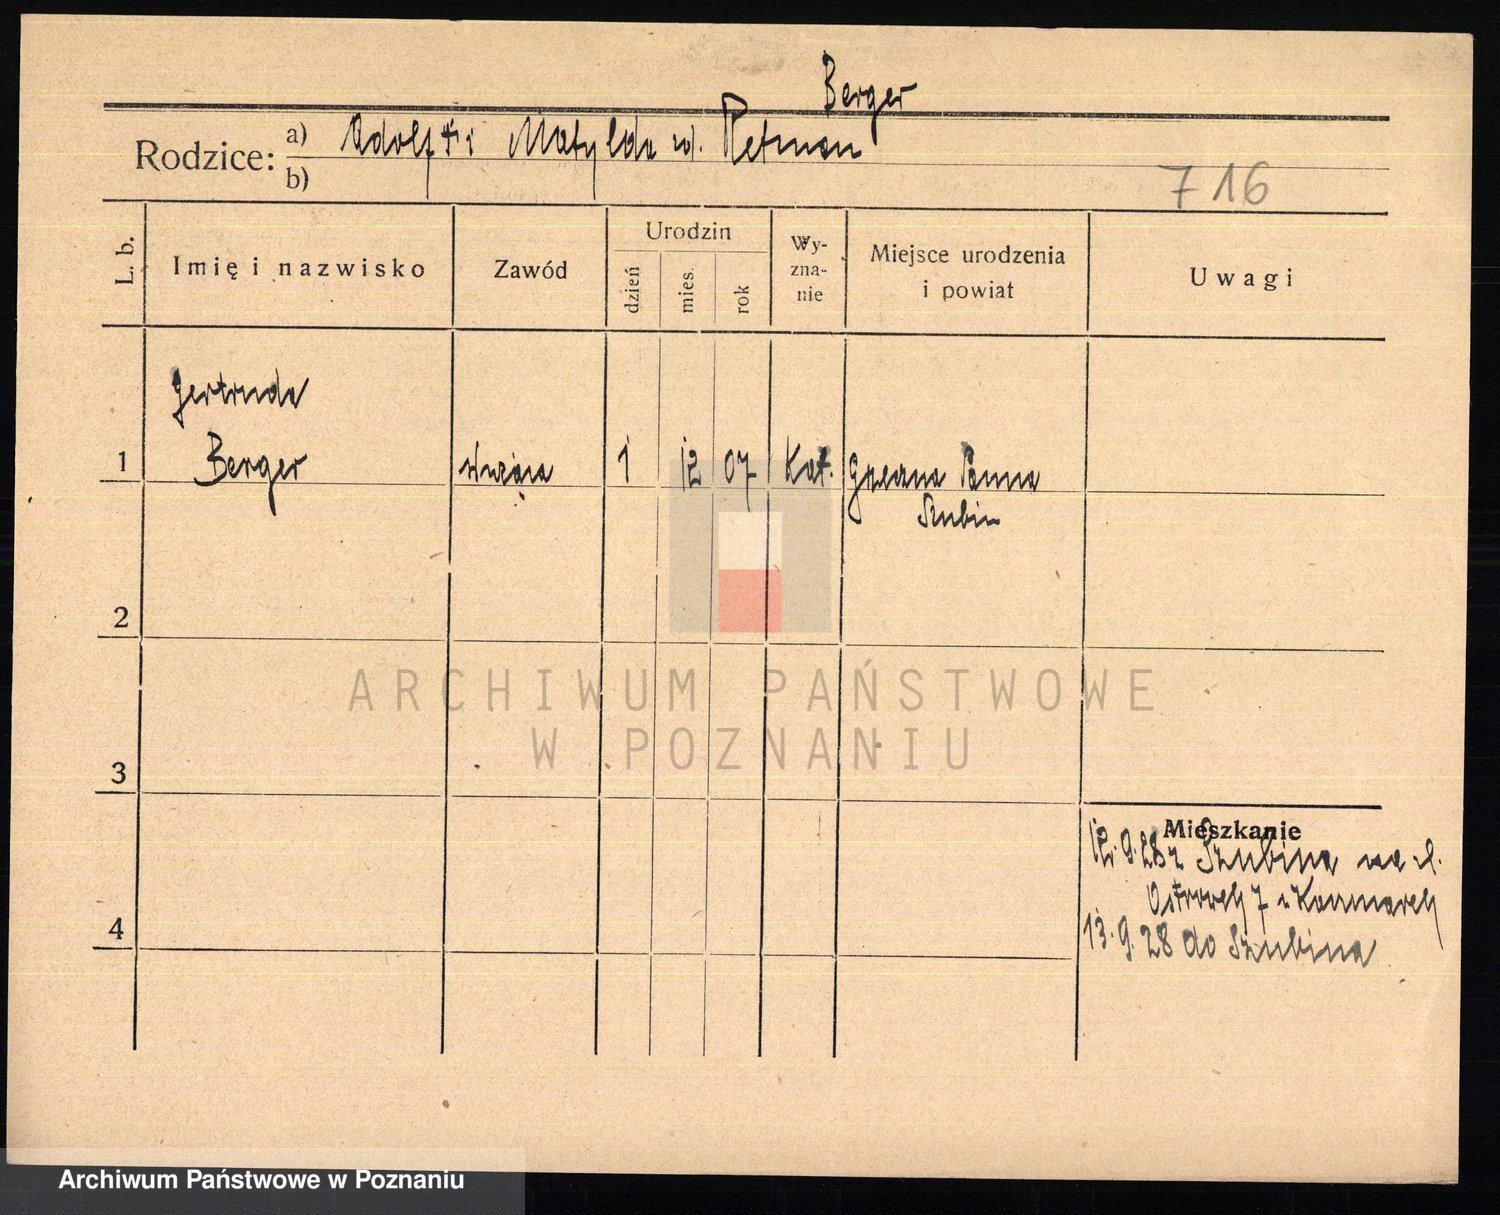 Berger
Rodzice: a) Adolf + i Matylda zd. Retman
b)
716
L. b.
Imię i nazwisko
Zawód
Urodzin
dzień
mies.
rok
Wy-
zna-
nie
Miejsce urodzenia
i powiat
Uwagi
Gertruda
1 Berger 1 12 07 Kat. Panna
Szubin
2
ARCHIWUM PAŃSTWOWE
W POZNANIU
3
Mieszkanie
12.9.28 z Szubina na
7
4
13.9.28 do Szubina
Archiwum Państwowe w Poznaniu